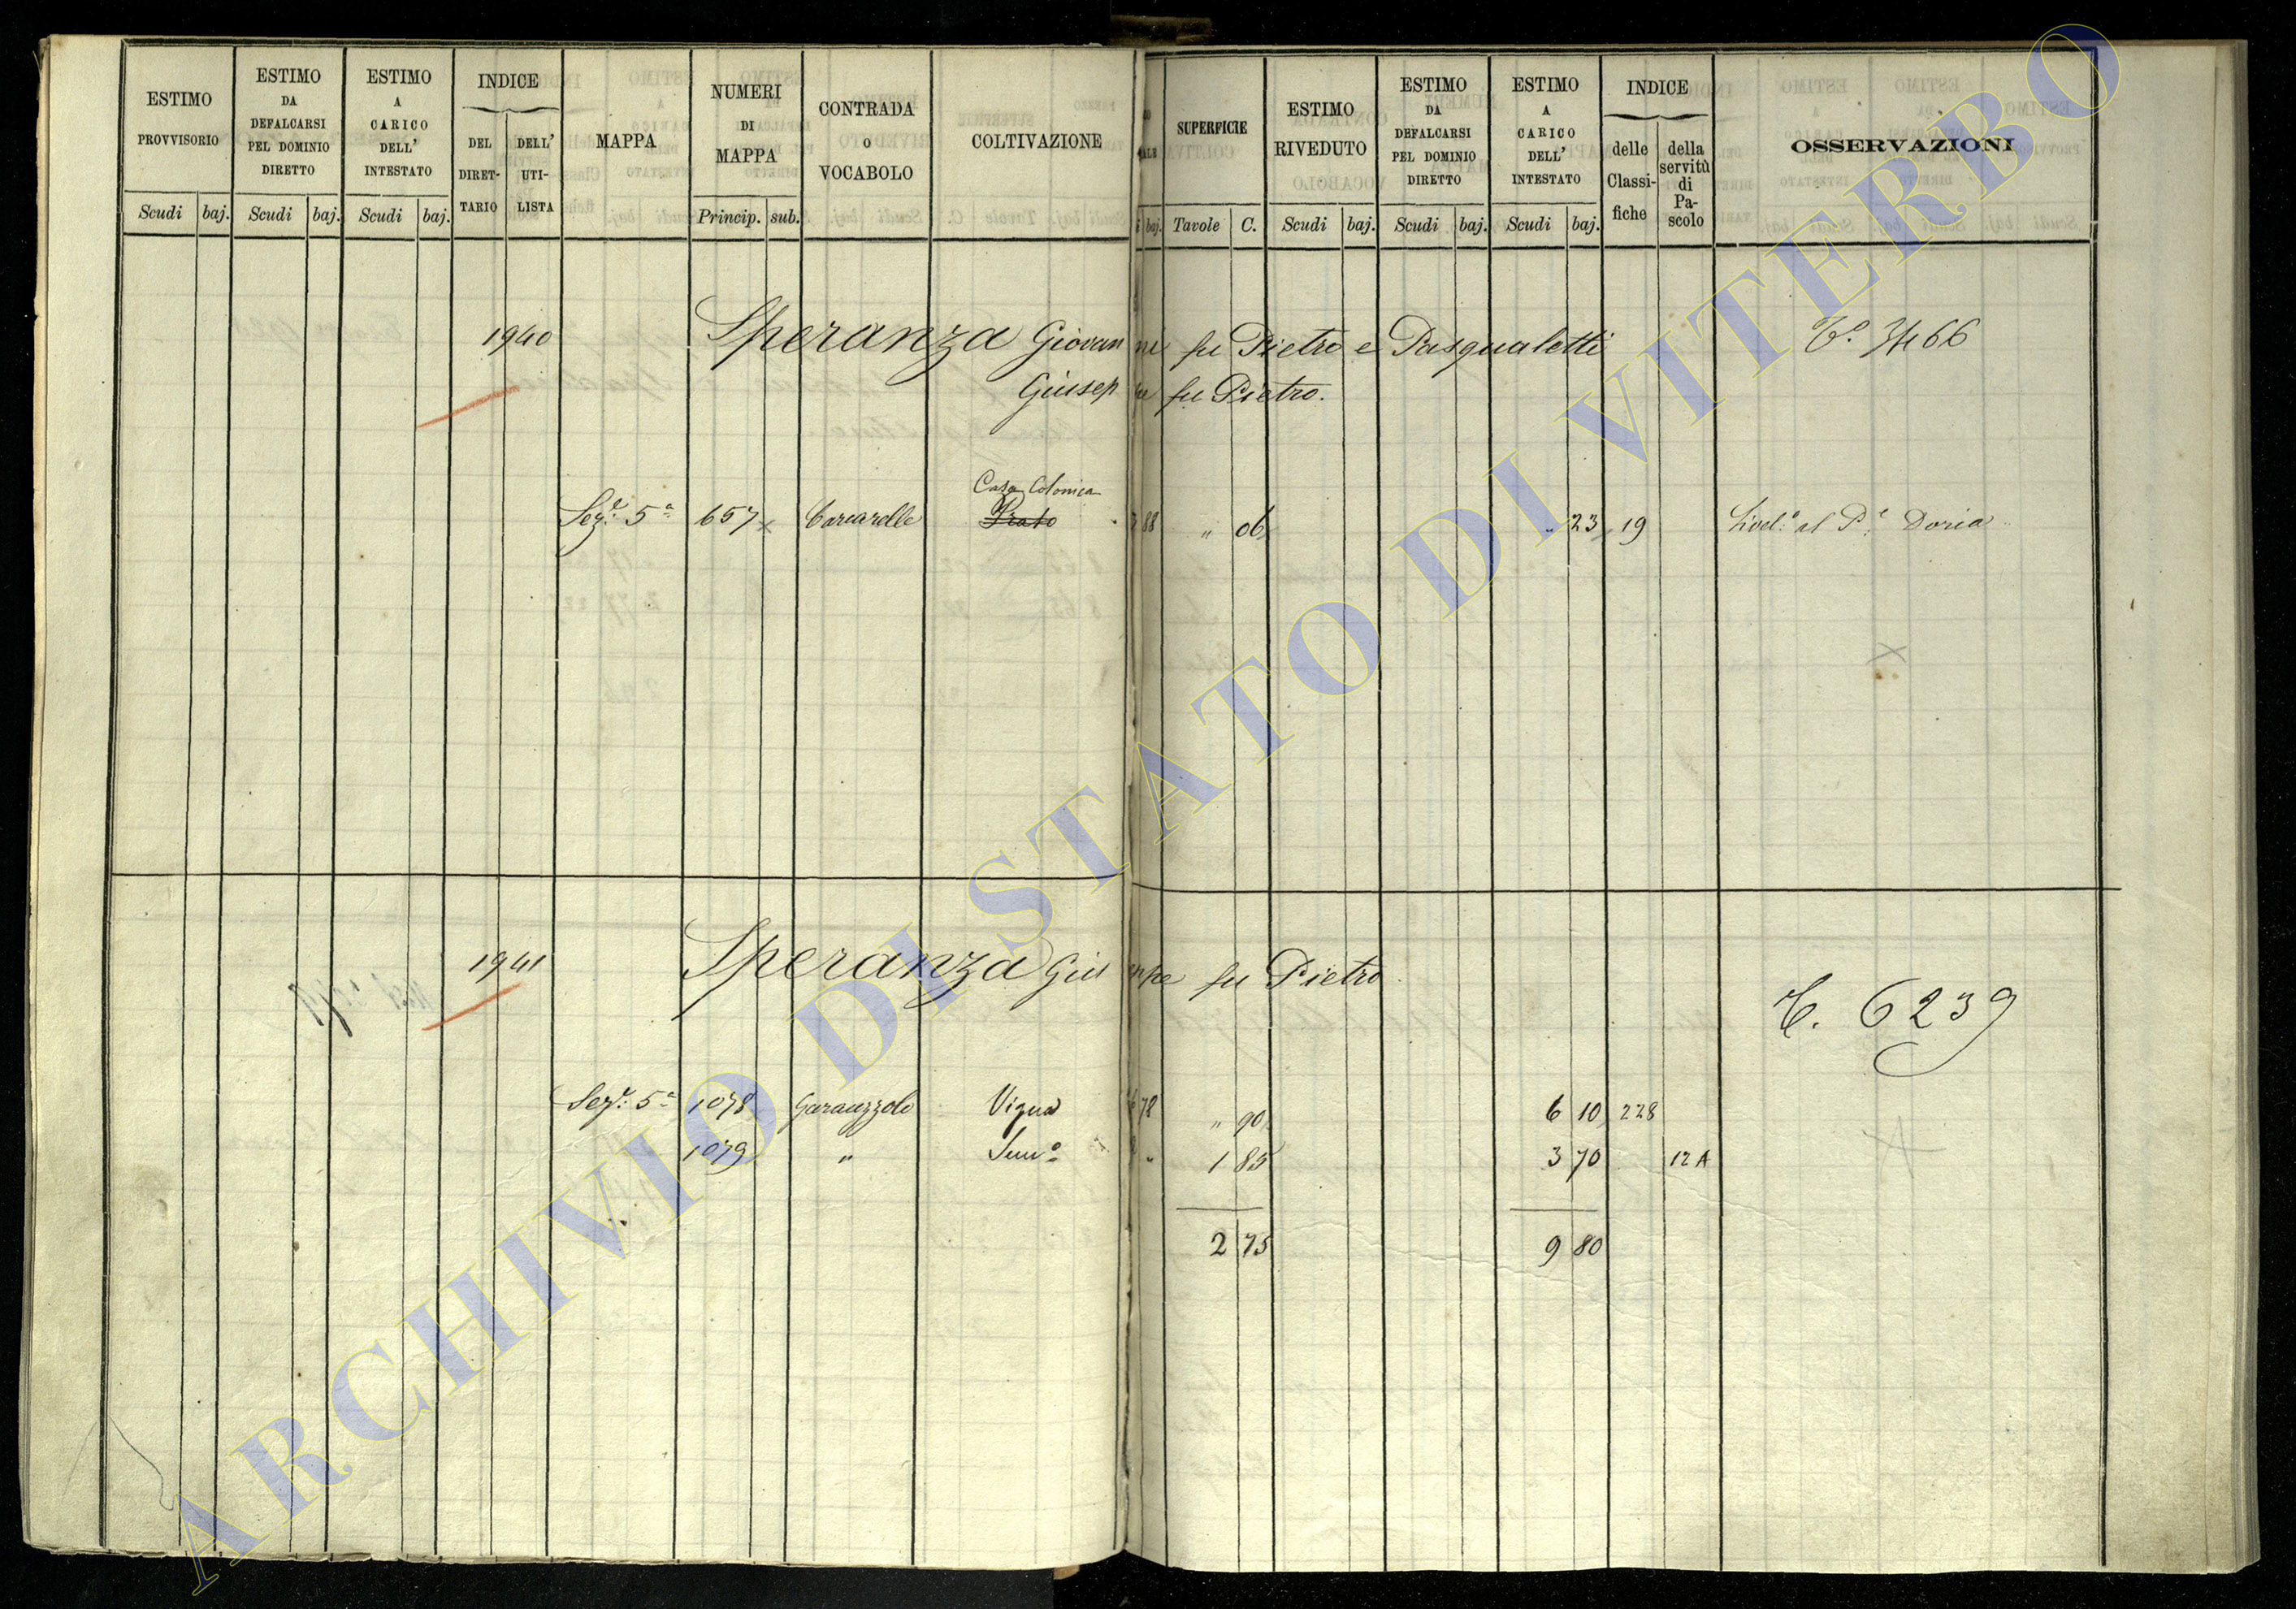 ESTIMO PROVVISORIO
Scudi baj.
ESTIMO DA DEFALCARSI PEL DOMINIO DIRETTO
Scudi baj.
ESTIMO A CARICO DELL' INTESTATO
Scudi baj.
INDICE
DEL DIRET-TARIO
DELL' UTI-LISTA
MAPPA
NUMERI DI MAPPA
Princip. sub.
CONTRADA O VOCABOLO
COLTIVAZIONE
baj.
SUPERFICIE
Tavole C.
ESTIMO RIVEDUTO
Scudi baj.
ESTIMO DA DEFALCARSI PEL DOMINIO DIRETTO
Scudi baj.
ESTIMO A CARICO DELL' INTESTATO
Scudi baj.
INDICE
delle Classi-fiche
della servitù di Pa-scolo
OSSERVAZIONI
1940 Speranza Giovanni fu Pietro e Pasqualetti
Giuseppe fu Pietro.
Casa Colonica
Sez.e 5a 657 Carcarelle Prato 88 " 06 " 23 19 Livel.o al P.e Doria
1941 Speranza Giuseppe fu Pietro
C. 6239
Sez.e 5a 1078 Vigna 78 " 90 6 10 228
1079 " Sem.o " 1 85 3 70 12 A
2 75 9 80
ARCHIVIO DI STATO DI VITERBO